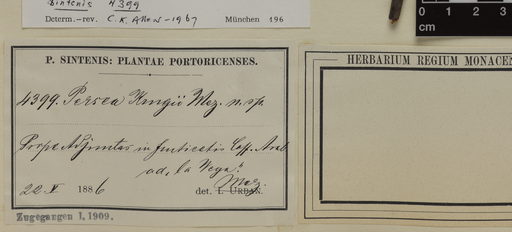 Sintenis 4399
Determ.-rev. C. K. Allen -1967 München 196
0 1 2 3
cm
P. SINTENIS: PLANTAE PORTORICENSES.
4399. Persea Krugii Mez. n. sp.
Prope Adjuntas in fruticetis Coff. Arab.
ad "la Vega".
22 V 1886 det. I. URBAN. Mez.
Zugegangen 1, 1909.
HERBARIUM REGIUM MONACEN